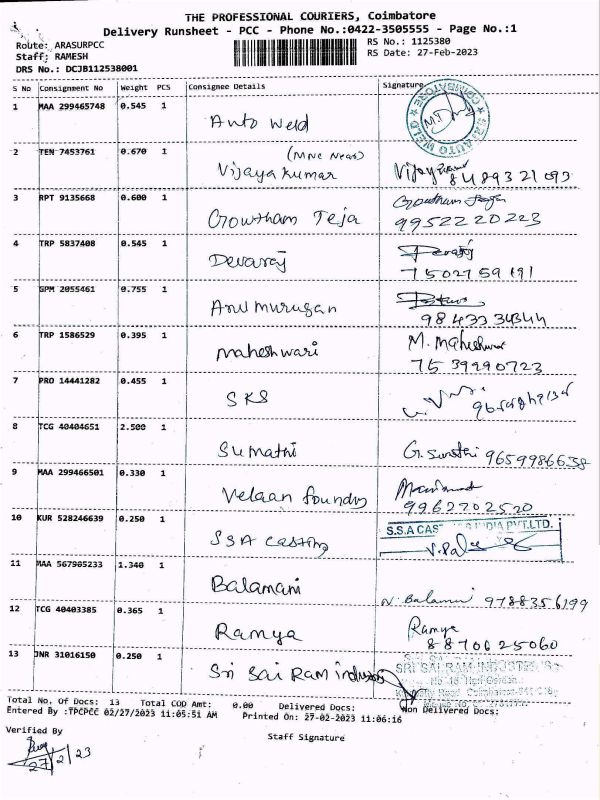 THE PROFESSIONAL COURIERS, Coimbatore
Delivery Runsheet - PCC - Phone No.:0422-3505555 - Page No.:1
Route: ARASURPCC RS No.: 1125380
Staff: RAMESH RS Date: 27-Feb-2023
DRS No.: DCJB112538001
S No Consignment No Weight PCS Consignee Details Signature
1 MAA 299465748 0.545 1 Auto Weld
2 TEN 7453761 0.670 1 (MNC Near)
Vijaya Kumar Vijay 8489321093
3 RPT 9135668 0.600 1 Gowtham Teja Gowtham Teja
9952220223
4 TRP 5837408 0.545 1 Devaraj Devaraj
7502759191
5 GPM 2055461 0.755 1 Arul murugan
9843334344
6 TRP 1586529 0.395 1 maheshwari M. Maheshwari
7539990723
7 PRO 14441282 0.455 1 SKS
8 TCG 40404651 2.500 1 Sumathi G. Sumathi 9659986638
9 MAA 299466501 0.330 1 Velaan foundry
9962702520
10 KUR 528246639 0.250 1 SSA casting S.S.A CAS INDIA PVT.LTD.
11 MAA 567905233 1.340 1 Balamani N. Balamani 9788356199
12 TCG 40403385 0.365 1 Ramya Ramya
8870625060
13 JNR 31016150 0.250 1 Sri Sai Ram industries SRI SAI RAM INDUSTRIES
Total No. Of Docs: 13 Total COD Amt: 0.00 Delivered Docs: Non Delivered Docs:
Entered By :TPCPCC 02/27/2023 11:05:51 AM Printed On: 27-02-2023 11:06:16
Verified By Staff Signature
27/2/23